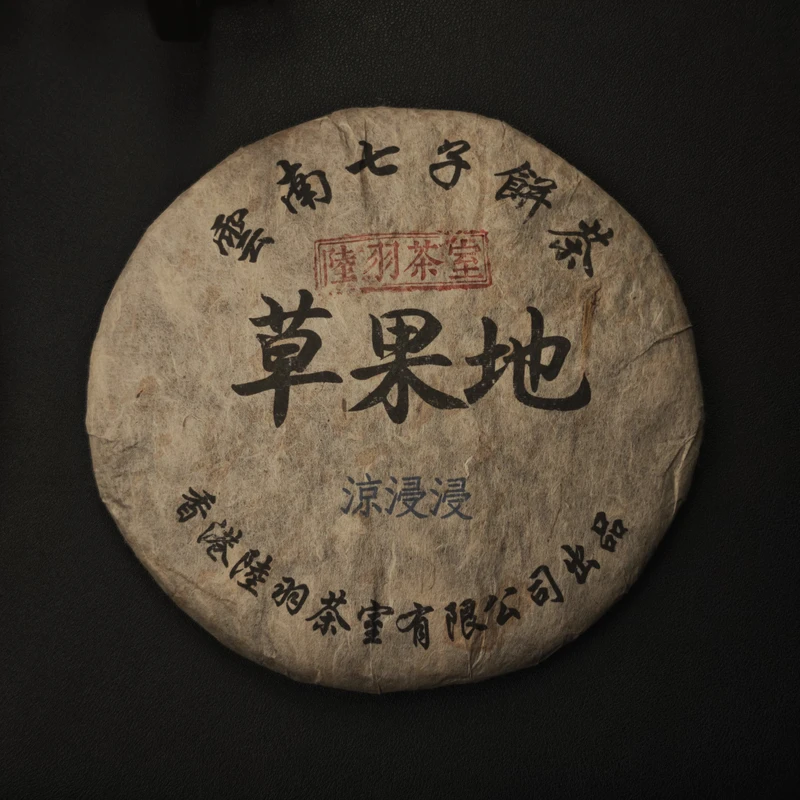 雲南七子餅茶
陸羽茶室
草果地
涼浸浸
香港陸羽茶室有限公司出品